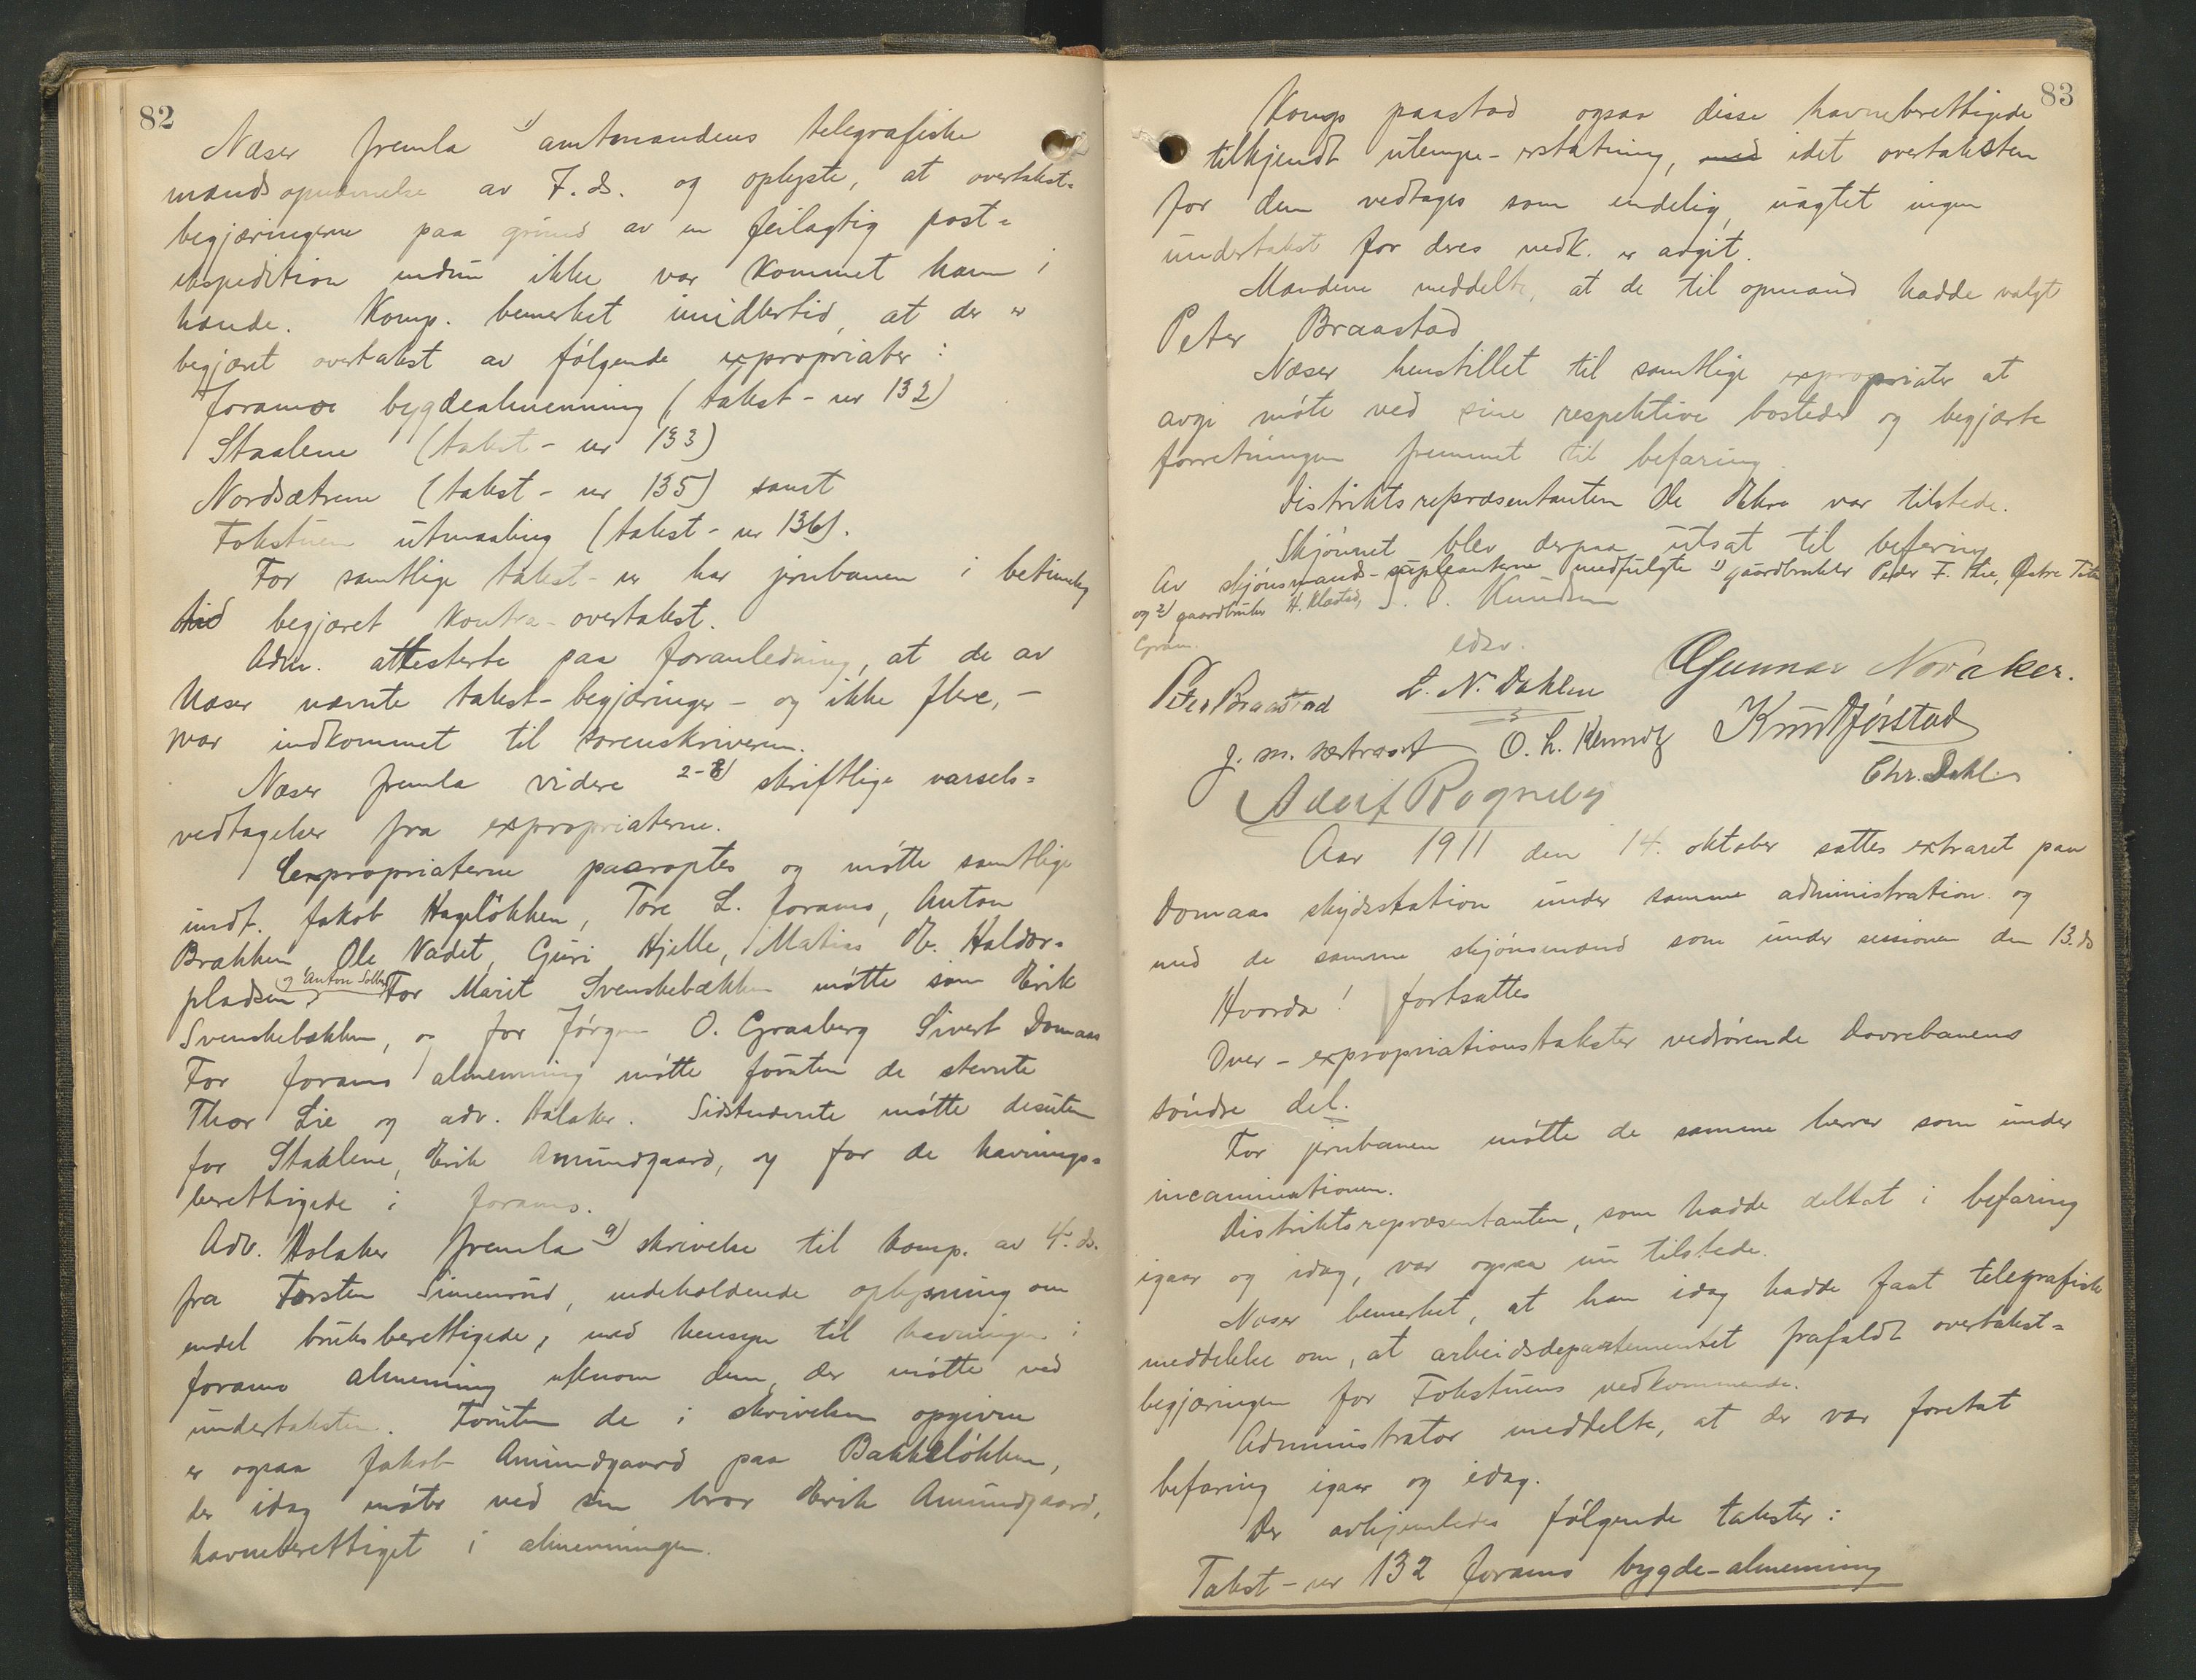 82
Næser fremla 1) amtmandens telegrafiske
mandsopnævnelse av F.ds. og oplyste, at overtakst=
begjæringerne paa grund av en feilagtig post=
ekspedition endnu ikke var kommet ham i
hænde. Komp. bemerket imidlertid, at der er
begjæret overtakst av følgende expropriater:
Joramo bygdealmenning (takst-nr 132)
Staalene (takst-nr 133)
Nordsætrene (takst-nr 135) samt
Fokstuen utmaaling (takst-nr 136).
For samtlige takst-nr har jernbanen i betimelig
tid begjæret kontra-overtakst.
Adm. attesterte paa foranledning, at de av
Næser nævnte takst-begjæringer - og ikke flere, -
var indkommet til sorenskriveren.
Næser fremla videre 2-8) skriftlige varsels=
vedtagelser fra expropriaterne.
Expropriaterne paaroptes og møtte samtlige
undt. Jakob Hageløkken, Tore L. Joramo, Anton
Brakken, Ole Nadet, Guri Hjelle, Matias E. Haldor=
pladsen og Anton Solberg. For Marit Svenskebækken møtte søn Erik
Svenskebækken, og for Jørgen O. Graaberg Sivert Domaas
For Joramo almenning møtte foruten de stevnte
Thor Lie og adv. Holaker. Sidstnævnte møtte desuten
for Staalene, Erik Amundgaard, og for de havnings=
berettigede i Joramo.
Adv. Holaker fremla 9) skrivelse til komp. av 4. ds.
fra Torsten Simenrud, indeholdende oplysning om
endel bruksberettigede, med hensyn til havningen i
Joramo almenning utenom dem, der møtte ved
undertaksten. Foruten de i skrivelsen opgivne
er ogsaa Jakob Amundgaard paa Bakkeløkken,
der idag møter ved sin bror Erik Amundgaard,
havneberettiget i almenningen.
83
Komp paastod ogsaa disse havneberettigede
tilkjendt ulempe-erstatning, med idet overtaksten
for dem vedtages som endelig, uagtet ingen
undertakst for deres vedk. er avgit.
Mændene meddelte, at de til opmand hadde valgt
Peter Braastad
Næser henstillet til samtlige expropriater at
avgi møte ved sine respektive bosteder og begjærte
forretningen fremmet til befaring.
Distriktsrepræsentanten Ole Ekre var tilstede.
Skjønnet blev derpaa utsat til befaring
Av skjønsmands-supleanterne medfulgte 1) gaardbruker Peder F. Lie, Østre Toten
og 2) gaardbruker H. Klæstad,
Gran.
J. P. Knudsen
edsv.
Peter Braastad L. N. Dahlen Gunnar Noraker.
J. M. Sertraset O. L. Kermoly Knut Jørstad
Chr. Dahl
Adolf Rognely
Aar 1911 den 14. oktober sattes extraret paa
Domaas skydsstation under samme administration og
med de samme skjønsmænd som under sessionen den 13. ds
Hvorda! fortsattes
Over-expropriationstakster vedrørende Dovrebanens
søndre del.
For jernbanen møtte de samme herrer som under
incaminationen.
Distriktsrepræsentanten, som hadde deltat i befaring
igaar og idag, var ogsaa nu tilstede.
Næser bemerket, at han idag hadde faat telegrafisk
meddelelse om, at arbeidsdepartementet frafaldt overtakst=
begjæringen for Fokstuens vedkommende.
Administrator meddelte, at der var foretat
befaring igaar og idag.
Der avhjemledes følgende takster:
Takst-nr 132 Joramo bygde-almenning